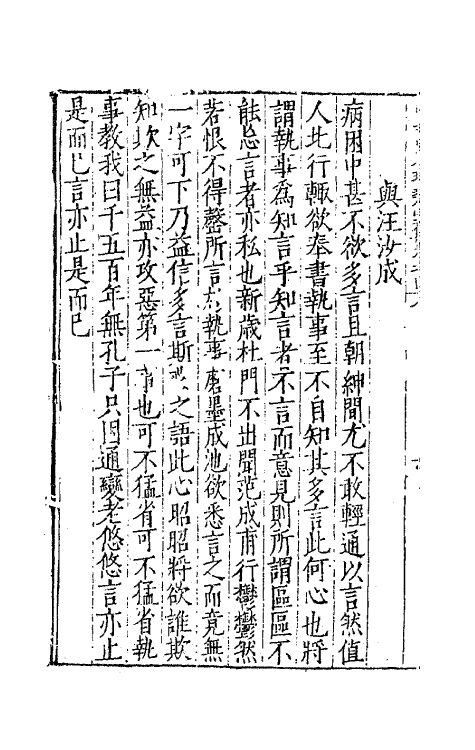 與汪汝成
病困中甚不欲多言且朝紳間尤不敢輕通以言然值
人北行輙欲奉書執事至不自知其多言此何心也將
謂執事為知言乎知言者不言而意見則所謂區區不
能忘言者亦私也新歲杜門不出聞范成甫行欝欝然
若恨不得罄所言於執事磨墨成池欲悉言之而竟無
一字可下乃益信多言斯之語此心昭昭將欲誰欺
知欺之無益亦攻惡第一着也可不猛省可不猛省執
事教我曰千五百年無孔子只因通變老悠悠言亦止
是而已言亦止是而已